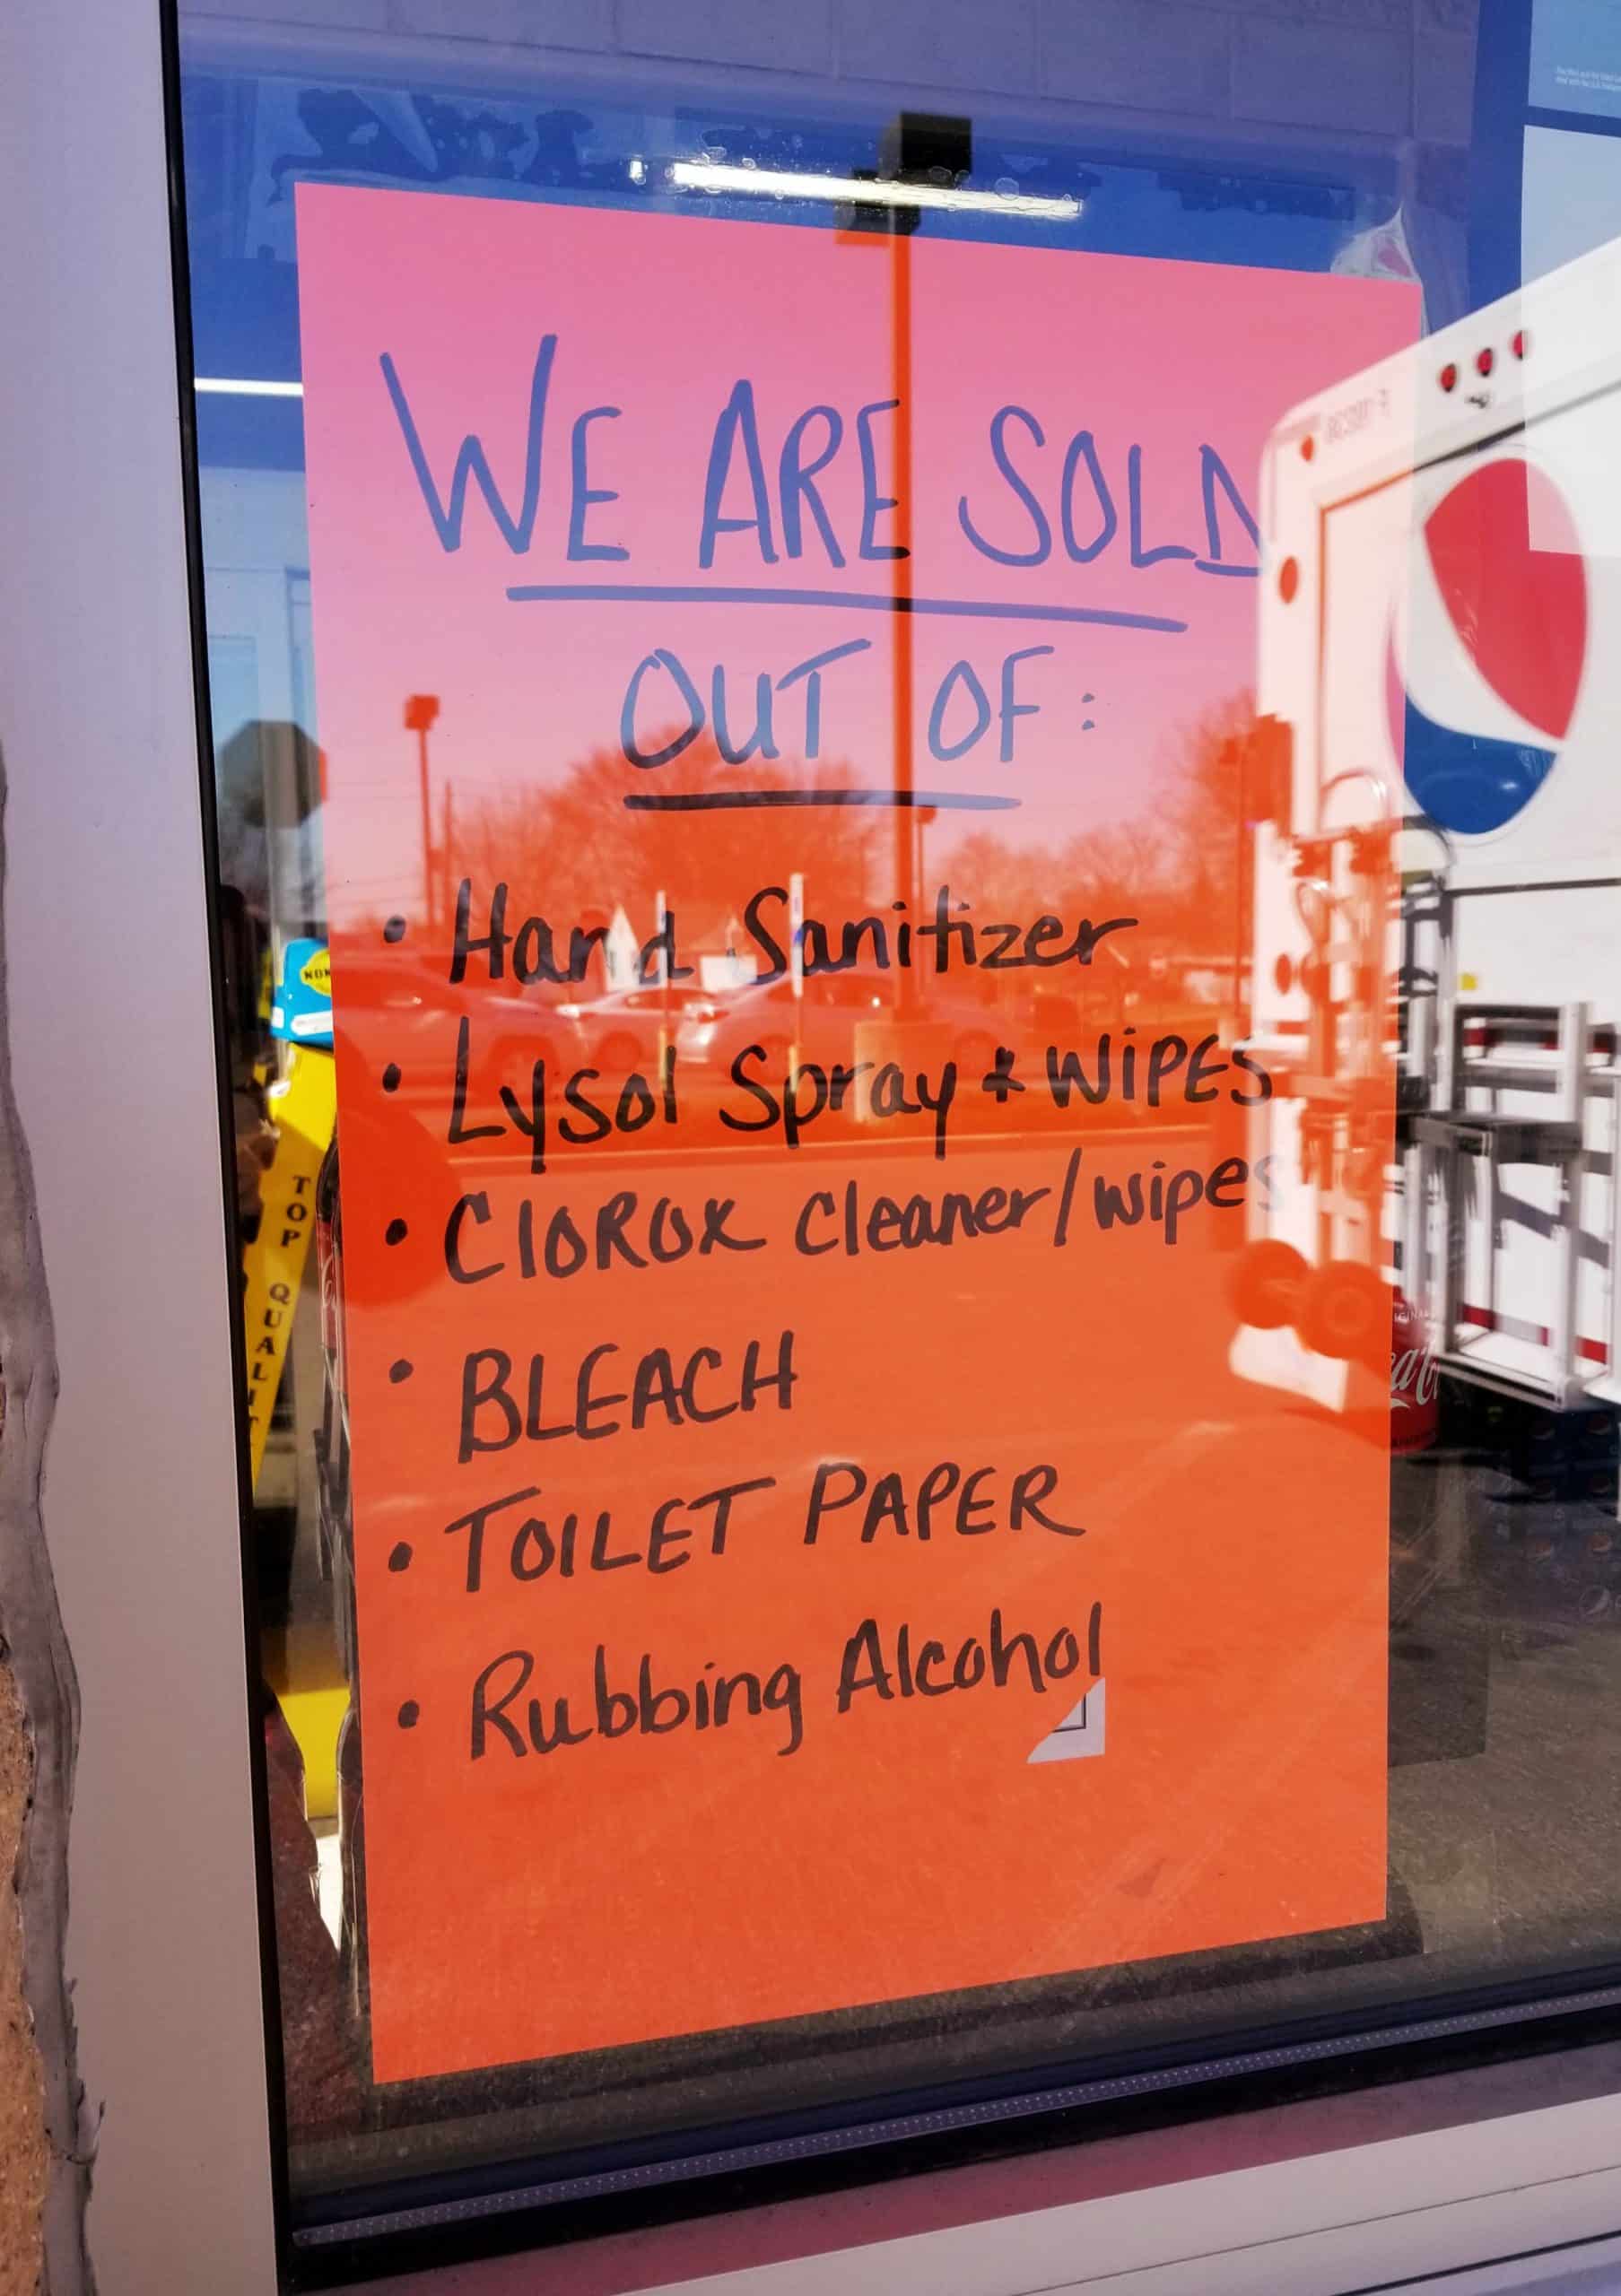 WE ARE SOLD
OUT OF:
• Hand Sanitizer
• Lysol Spray & WIPES
• CLOROX Cleaner/wipes
• BLEACH
• TOILET PAPER
• Rubbing Alcohol
TOP QUALI